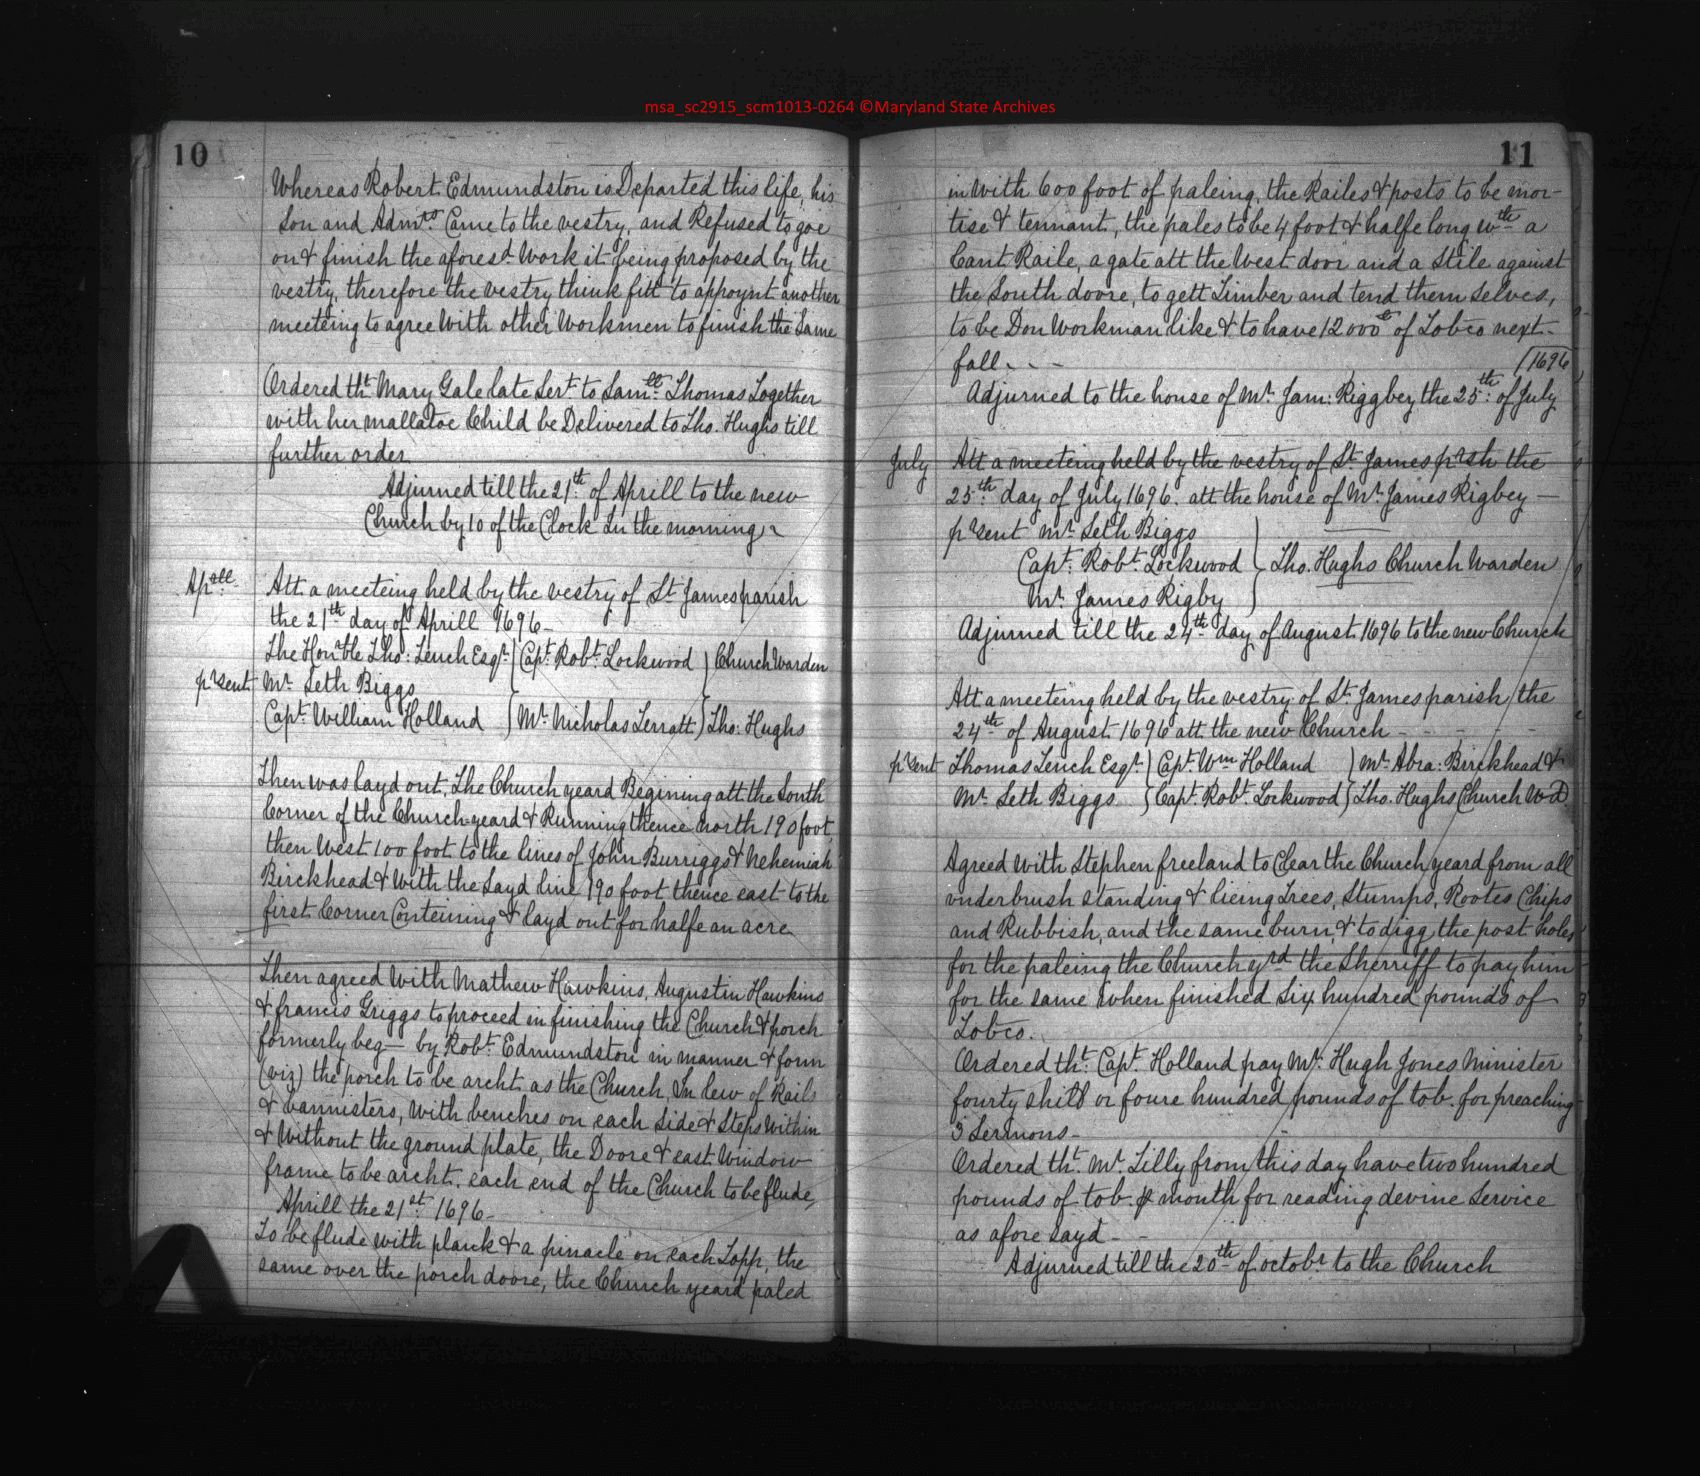 msa_sc2915_scm1013-0264 ©Maryland State Archives
10
Whereas Robert Edmundston is Departed this life, his
Son and Admrs. Came to the vestry, and Refused to goe
on & finish the aforesd. Work it being proposed by the
vestry, therefore the vestry think fitt to appoynt another
meeteing to agree With other Workmen to finish the Same
Ordered tht. Mary Gale late Sert. to Samll. Thomas Together
with her mallatoe Child be Delivered to Tho. Hughs till
further order
Adjurned till the 21th. of Aprill to the new
Church by 10 of the Clock In the morning
Aprll. Att a meeteing held by the vestry of St. James parish
the 21th day of Aprill 1696-
The Honrble Tho: Tench Esqr. } Capt. Robt. Lockwood } Church Warden
prsent Mr. Seth Biggs
Capt. William Holland } Mr. Nicholas Terratt } Tho: Hughs
Then was layd out, The Church yeard Begining att the South
Corner of the Church yeard & Running thence north 190 foot,
then West 100 foot to the lines of John Burriggs & Nehemiah
Birckhead & With the Sayd line 190 foot thence east to the
first Corner Conteining & layd out for halfe an acre
Then agreed With Mathew Hawkins, Augustin Hawkins
& francis Griggs to proceed in finishing the Church & porch
formerly beg— by Robt. Edmundston in manner & form
(viz) the porch to be archt as the Church, In lew of Rails
& bannisters, With benches on each Side & Steps Within
& Without the ground plate, the Doore & east Window
frame to be archt. each end of the Church to be flude,
Aprill the 21st. 1696-
To be flude with planck & a pinacle on each Topp, the
same over the porch doore, the Church yeard paled
11
in With 600 foot of paleing, the Railes & posts to be mor-
tise & tennant, the pales to be 4 foot & halfe long wth a
Cant Raile, a gate att the West door and a Stile against
the South doore, to gett Timber and tend them Selves,
to be Don Workman like & to have 12000 lb of Tobco next
fall - - - 1696
Adjurned to the house of Mr. Jam: Riggbey the 25th: of July
July Att a meeteing held by the vestry of St. James prsh the
25th. day of July 1696. att the house of Mr. James Rigbey —
prsent Mr. Seth Biggs
Capt. Robt. Lockwood } Tho. Hughs Church Warden
Mr. James Rigby
Adjurned till the 24th. day of August 1696 to the new Church
Att a meeteing held by the vestry of St. James parish the
24th. of August 1696 att the new Church - - - -
prsent Thomas Tench Esqr. } Capt. Wm Holland } Mr. Abra: Birckhead &
Mr. Seth Biggs } Capt. Robt. Lockwood } Tho. Hughs Church Wd
Agreed With Stephen freeland to Clear the Church yeard from all
underbrush standing & lieing Trees, Stumps, Rootes Chips
and Rubbish, and the same burn, & to digg the post holes
for the paleing the Church yrd the Sherriff to pay him
for the same when finished Six hundred pounds of
Tobco.
Ordered tht. Capt. Holland pay Mr. Hugh Jones Minister
fourty shill or foure hundred pounds of tob. for preaching
3 Sermons-
Ordered tht. Mr. Lilly from this day have two hundred
pounds of tob. ⅌ month for reading devine Service
as afore Sayd - -
Adjurned till the 20th of octobr to the Church